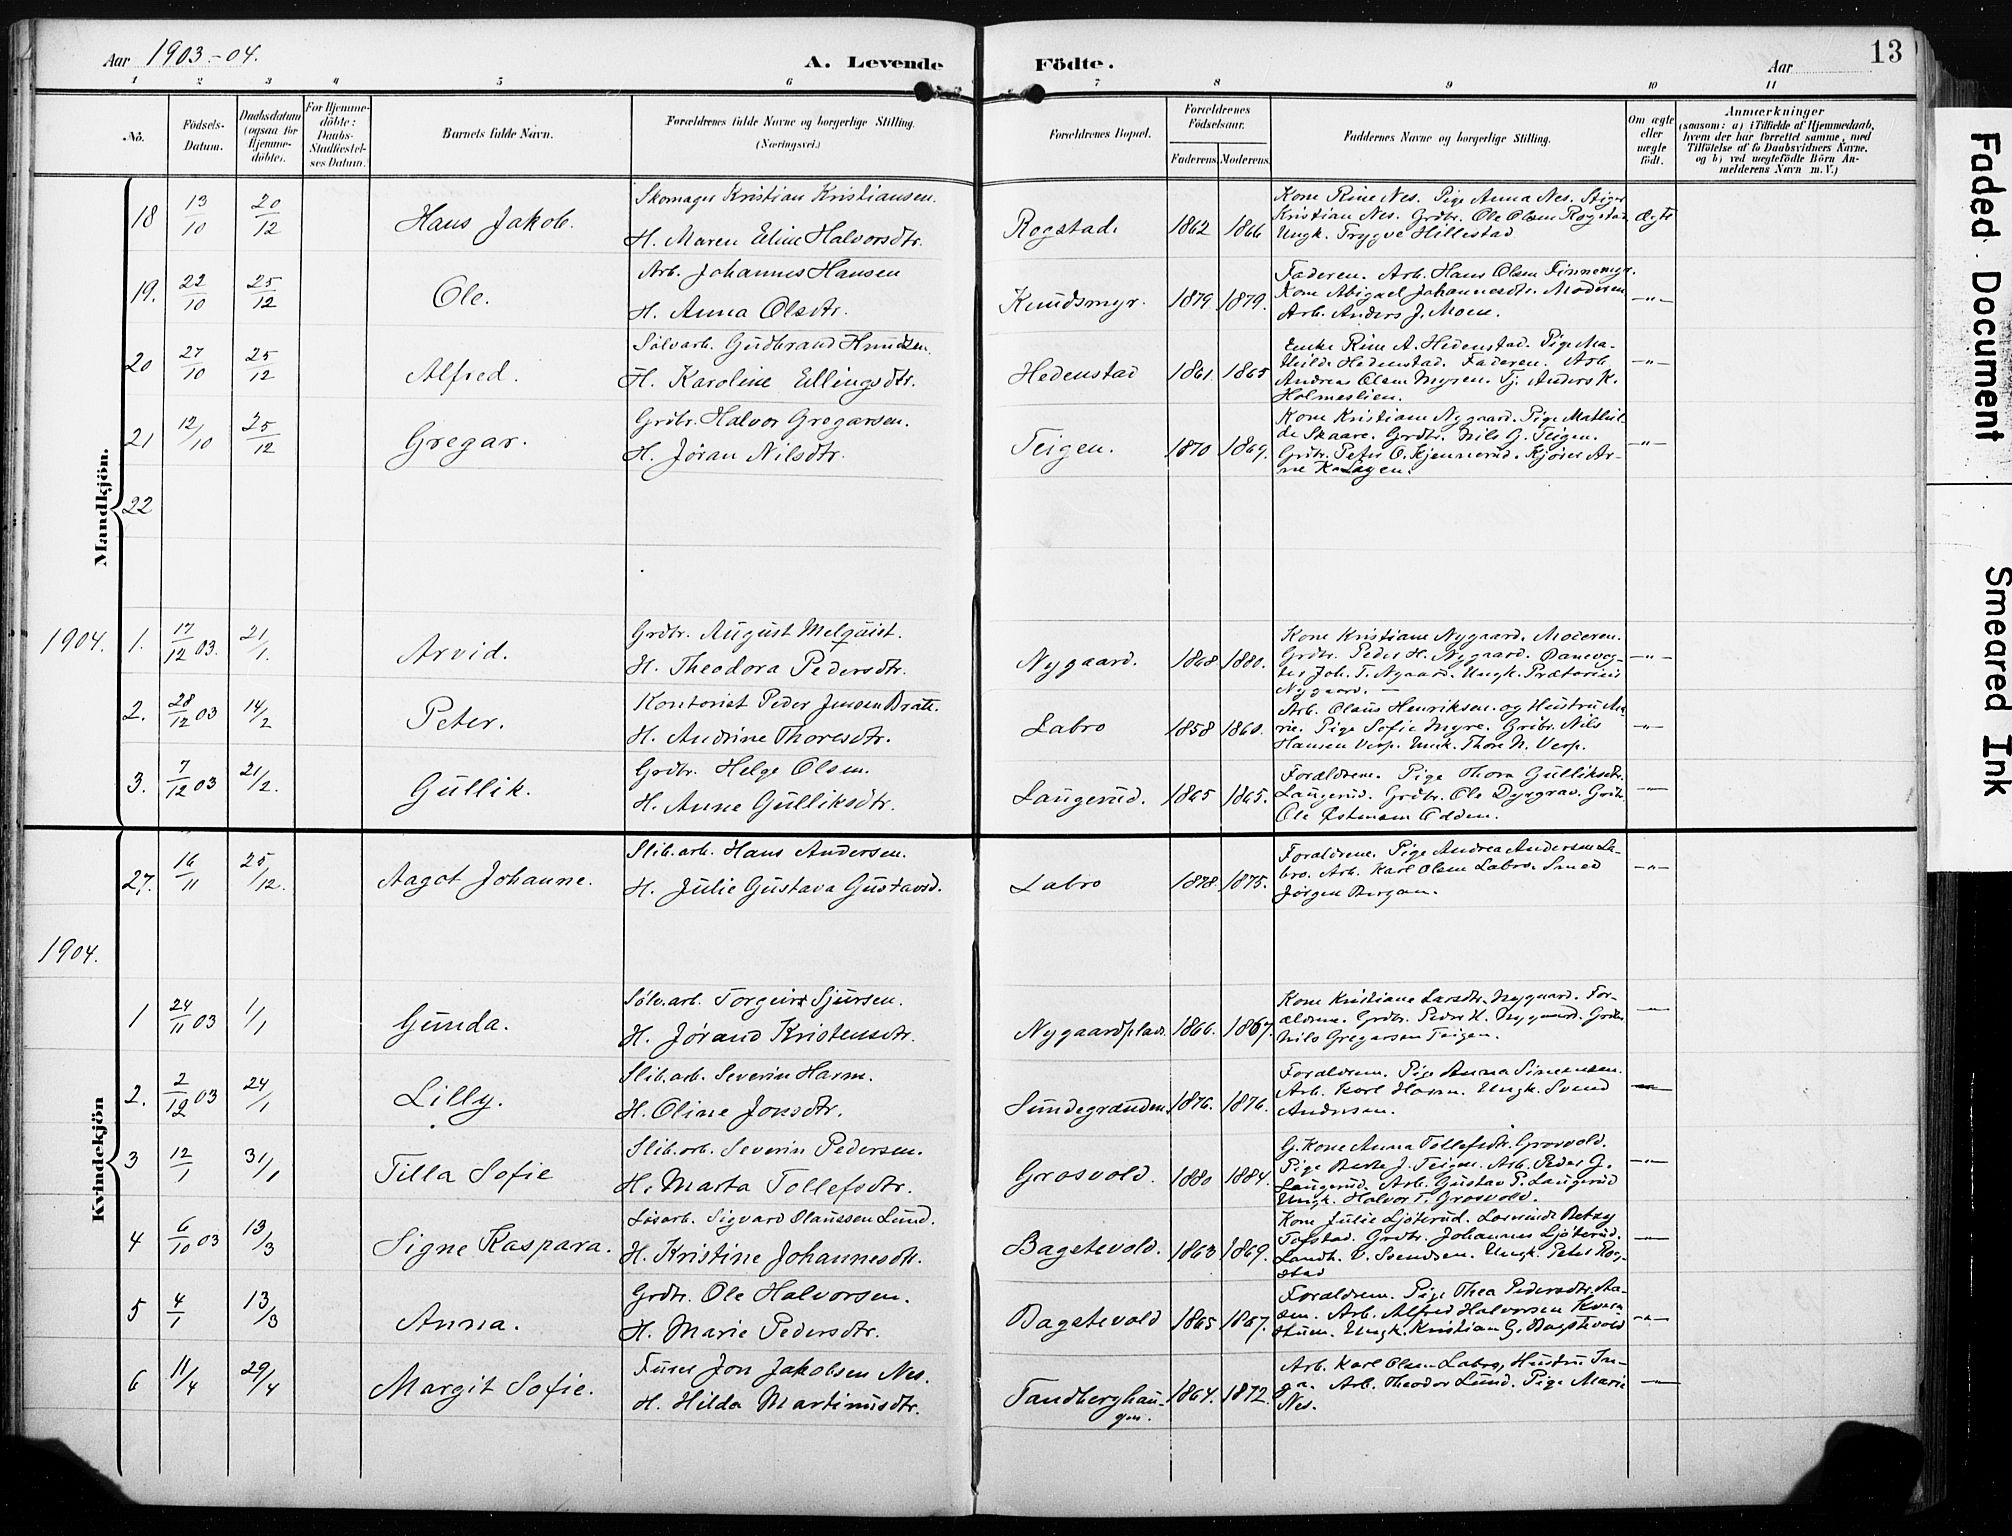 Aar 1903-04.
A. Levende Födte.
Aar
13
1 2 3 4 5 6 7 8 9 10 11
No.
Födsels-Datum.
Daabsdatum (ogsaa for Hjemmedöbte).
For Hjemmedöbte: Daabs-Stadfæstelses Datum.
Barnets fulde Navn.
Forældrenes fulde Navne og borgerlige Stilling. (Næringsvei.)
Forældrenes Bopæl.
Forældrenes Födselsaar.
Faderens. Moderens.
Faddernes Navne og borgerlige Stilling.
Om ægte eller uægte födt.
Anmærkninger
(saasom: a) i Tilfælde af Hjemmedaab, hvem der har forrettet samme, med Tilföielse af to Daabsvidners Navne. og b) ved uægtefödte Börn Anmelderens Navn m. V.)
Mandkjön.
18 13/10 20/12 Hans Jakob. Skomager Kristian Kristiansen.
H. Maren Eline Halvorsdtr. Rogstad. 1862 1866
Kone Rine Nes. Pige Anna Nes. Stiger
Kristian Nes. Grdbr. Ole Olsen Rogstad. Ægte
Ungk. Trygve Hillestad
19. 22/10 25/12 Ole. Arb. Johannes Hansen
H. Anna Olsdtr. Knudsmyr. 1879 1879.
Faderen. Arb. Hans Olsen Finnemyr.
Kone Abigael Johannesdtr. Moderen
Arb. Anders J. Moen.
-"-
20 27/10 25/12 Alfred. Sølvarb. Gudbrand Knudsen.
H. Karoline Ellingsdtr. Hedenstad 1861. 1865
Enke Rine A. Hedenstad. Pige Ma-
thilde Hedenstad. Faderen. Arb.
Andreas Olsen Myren. Tj. Anders K.
Holmeslien.
-"-
21 12/10 25/12 Gregar. Grdbr. Halvor Gregarsen.
H. Jøran Nilsdtr. Teigen. 1870 1869.
Kone Kristiane Nygaard. Pige Mathil-
de Skaare. Grdbr. Nils G. Teigen.
Grdbr. Peter O. Kjennerud. Kjører Ar-
ne K. Lågen.
-"-
22
1904. 1. 17/12 03. 21/1. Arvid. Grdbr. August Melquist.
H. Theodora Pedersdtr. Nygaard. 1868 1880.
Kone Kristiane Nygaard. Moderen.
Grdbr. Peder H. Nygaard. Banevog-
ter Joh. T. Nygaard. Ungk. Prætorius
Nygaard.
-"-
2. 28/12 03 14/2 Peter. Kontorist Peder Jensen Bratt.
H. Andrine Thoresdtr. Labro 1858 1860.
Arb. Olaus Henriksen og Hustru Ma-
rie. Pige Sofie Myre. Grdbr. Nils
Hansen Verp. Ungk. Thore N. Verp.
-"-
3. 7/12 03 21/2. Gullik. Grdbr. Helge Olsen.
H. Anne Gulliksdtr. Laugerud. 1865 1865.
Forældrene. Pige Thora Gulliksdtr.
Laugerud. Grdbr. Ole Dyrgrav. Grdbr.
Ole Østensen Odden.
-"-
Kvindekjön
27. 16/11 25/12. Aagot Johanne. Slib.arb. Hans Andersen.
H. Julie Gustava Gustavsd. Labro 1878. 1875.
Forældrene. Pige Andrea Andersen La-
bro. Arb. Karl Olsen Labro. Smed
Jörgen Bergan.
-"-
1904.
1 24/11 03 1/1 Gunda. Sölv.arb. Torgeir Sjursen.
H. Jørand Kristensdtr. Nygaardplads. 1866. 1867.
Kone Kristiane Larsdtr. Nygaard. For-
ældrene. Grdbr. Peder H. Nygaard. Grdbr.
Nils Gregarsen Teigen.
-"-
2. 2/12 03 24/1 Lilly. Slib.arb. Severin Harm.
H. Oline Jonsdtr. Sundegrænden. 1876. 1876.
Forældrene. Pige Anna Simensen.
Arb. Karl Harm. Ungk. Svend
Andersen.
-"-
3 12/1 31/1 Tilla Sofie Slib.arb. Severin Pedersen.
H. Marta Tollefsdtr. Grosvold. 1880 1884.
G. Kone Anna Tollefsdtr. Grosvold.
Pige Berte J. Teigen. Arb. Peder G.
Laugerud. Arb. Gustav P. Laugerud
Ungk. Halvor T. Grosvold.
-"-
4 6/10 03 13/3 Signe Kaspara. Løsarb. Sigvard Olaussen Lund.
H. Kristine Johannesdtr. Bagstevold. 1863 1869.
Kone Julie Ljöterud. Betsy
Tofstad. Grdbr. Johannes Ljöterud.
Landh. V. Svendsen. Ungk. Peter Rog-
stad
-"-
5 4/1 13/3 Anna. Grdbr. Ole Halvorsen.
H. Marie Pedersdtr. Bagstevold 1865 1867.
Forældrene. Pige Thea Pedersdtr. Aa-
sen. Arb. Alfred Halvorsen
Ungk. Kristian G. Bagstevold
-"-
6 11/4 29/4 Margit Sofie. Jon Jakobsen Nes.
H. Hilda Martinusdtr. Tandberghau-
gen. 1864. 1872.
Arb. Karl Olsen Labro, Hustru In-
ga. Arb. Theodor Lund. Pige Marie
Nes.
-"-
Faded Document
Smeared Ink